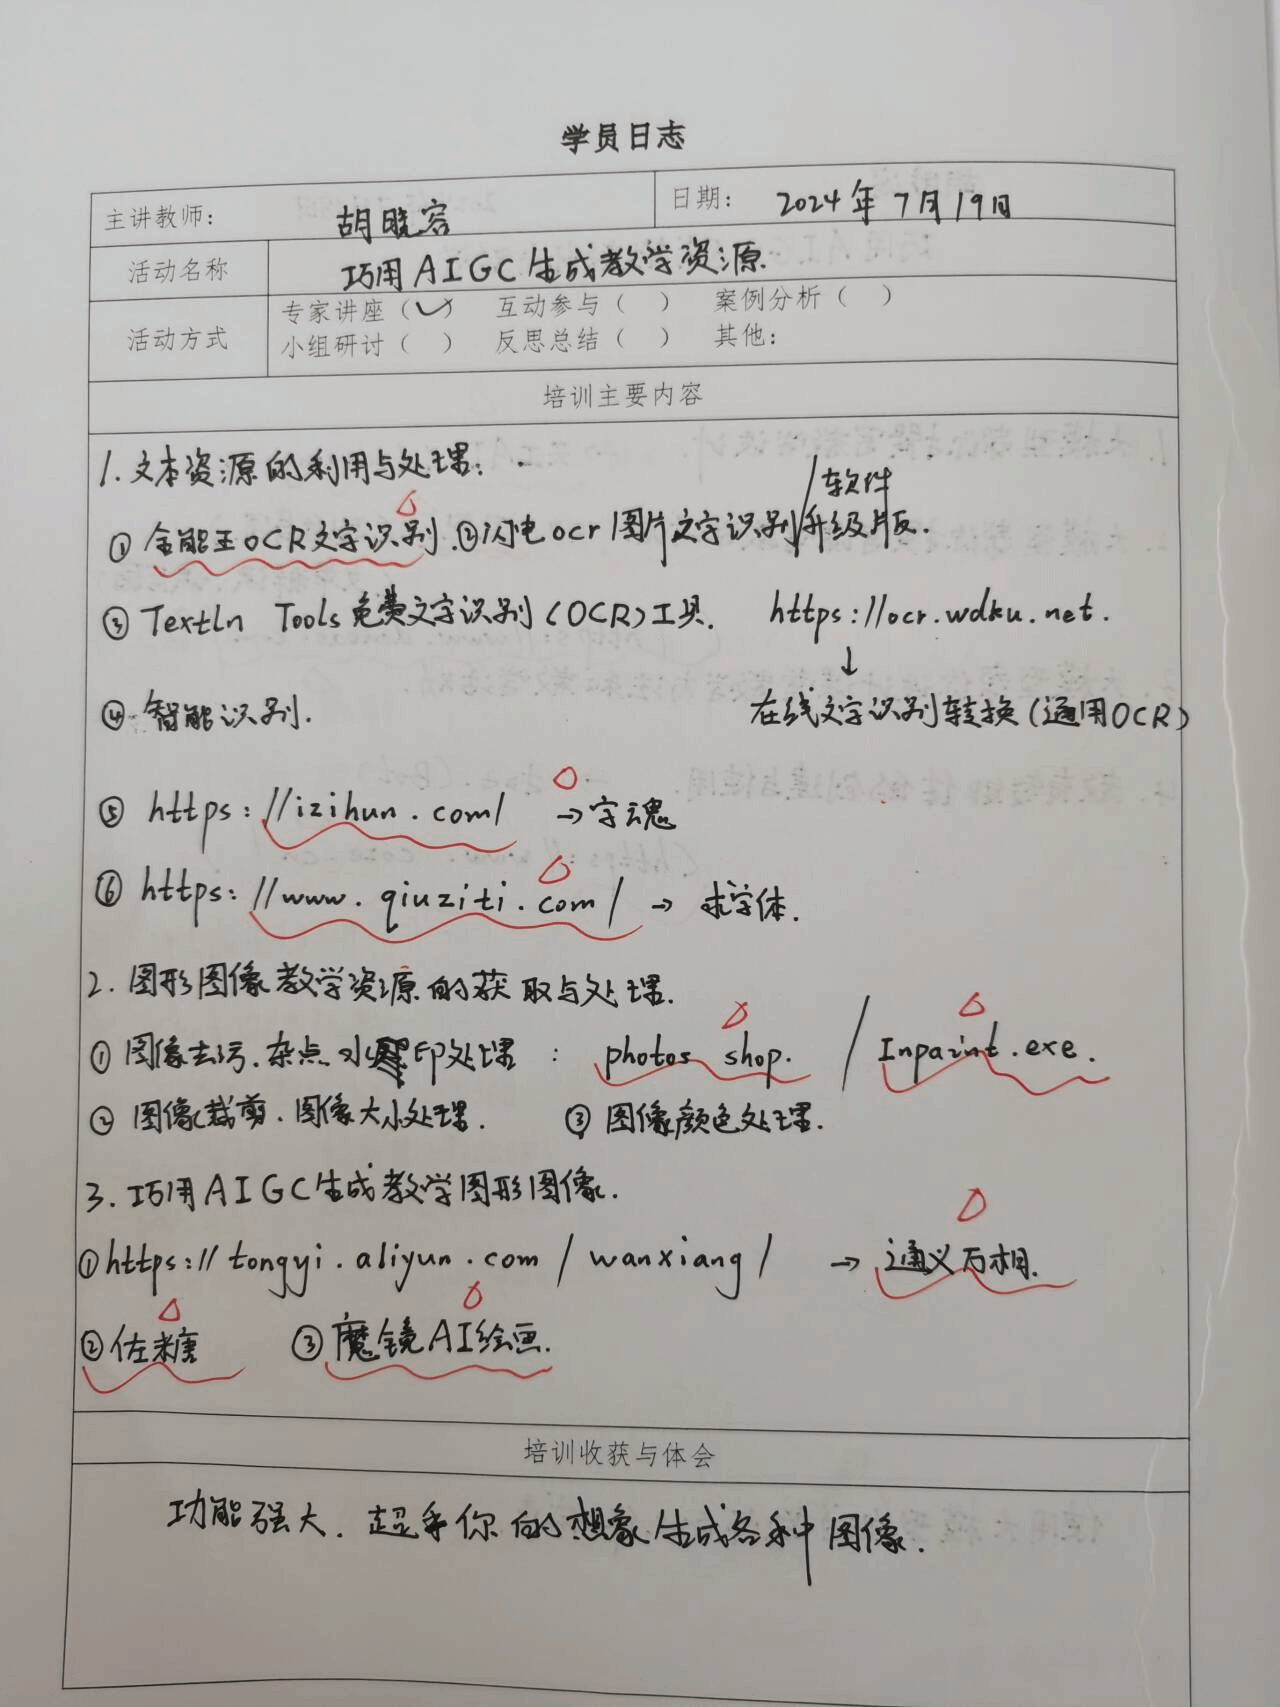 学员日志
主讲教师: 胡晓容 日期: 2024年7月19日
活动名称 巧用AIGC生成教学资源
活动方式 专家讲座(✓) 互动参与( ) 案例分析( )
小组研讨( ) 反思总结( ) 其他:
培训主要内容
1.文本资源的利用与处理:
软件
①全能王OCR文字识别.②闪电ocr图片文字识别/升级版.
③TextIn Tools免费文字识别(OCR)工具. https://ocr.wdku.net.
↓
④智能识别. 在线文字识别转换(通用OCR)
⑤https://izihun.com/ →字魂
⑥https://www.qiuziti.com/ → 求字体.
2.图形图像教学资源的获取与处理.
①图像去污.杂点.水印处理: photos shop. / Inpaint.exe.
②图像裁剪.图像大小处理. ③图像颜色处理.
3.巧用AIGC生成教学图形图像.
①https://tongyi.aliyun.com/wanxiang/ → 通义万相.
②佐糖 ③魔镜AI绘画.
培训收获与体会
功能强大.超乎你的想象生成各种图像.